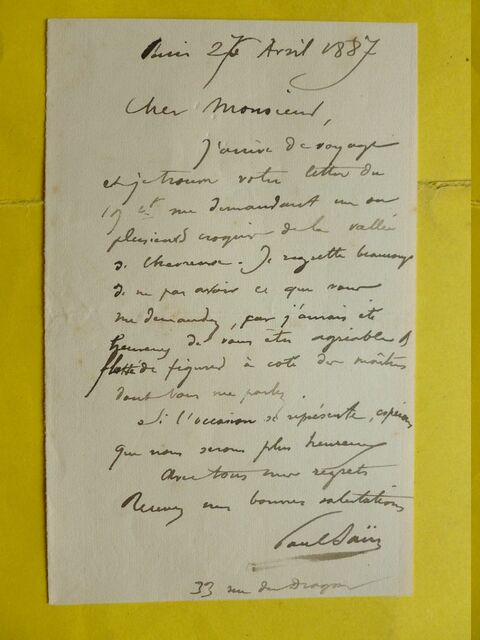 Paris 27 Avril 1887
Cher Monsieur,
J'arrive de voyage
et je trouve votre lettre du
19 ct me demandant un ou
plusieurs croquis de la vallée
de Chevreuse. Je regrette beaucoup
de ne pas avoir ce que vous
me demandez, car j'aurais été
heureux de vous être agréable &
flatté de figurer à coté des maîtres
dont vous me parlez.
Si l'occasion se représente, espérons
que nous serons plus heureux
Avec tous mes regrets
Recevez mes bonnes salutations
Paul Saïn
33 rue du Dragon